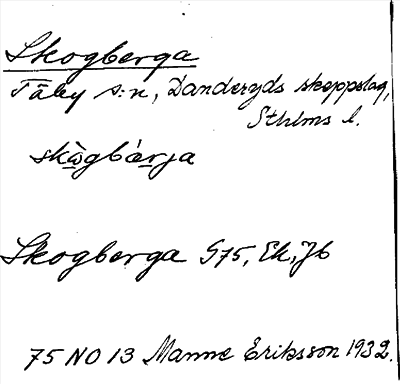 Skogberga
Täby s:n, Danderyds skeppslag,
Sthlms l.
skògbárja
Skogberga G75, Ek, Jb
75 NO 13 Manne Eriksson 1932.